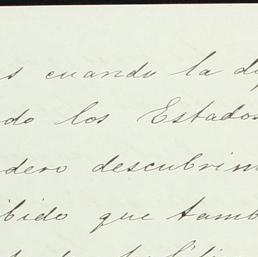 s cuando la de
do los Estados
dero descubrim
ibido que tamb